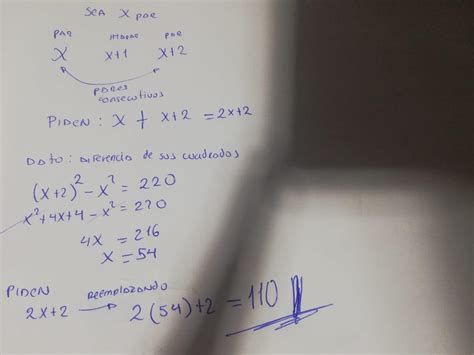 SEA X PAR
PAR IMPAR PAR
X X+1 X+2
PARES
CONSECUTIVOS
PIDEN : X + X+2 = 2X+2
DATO : DIFERENCIA de sus cuadrados
(X+2)² - X² = 220
X²+4X+4 - X² = 220
4X = 216
X = 54
PIDEN REEMPLAZANDO
2X+2 → 2(54)+2 = 110